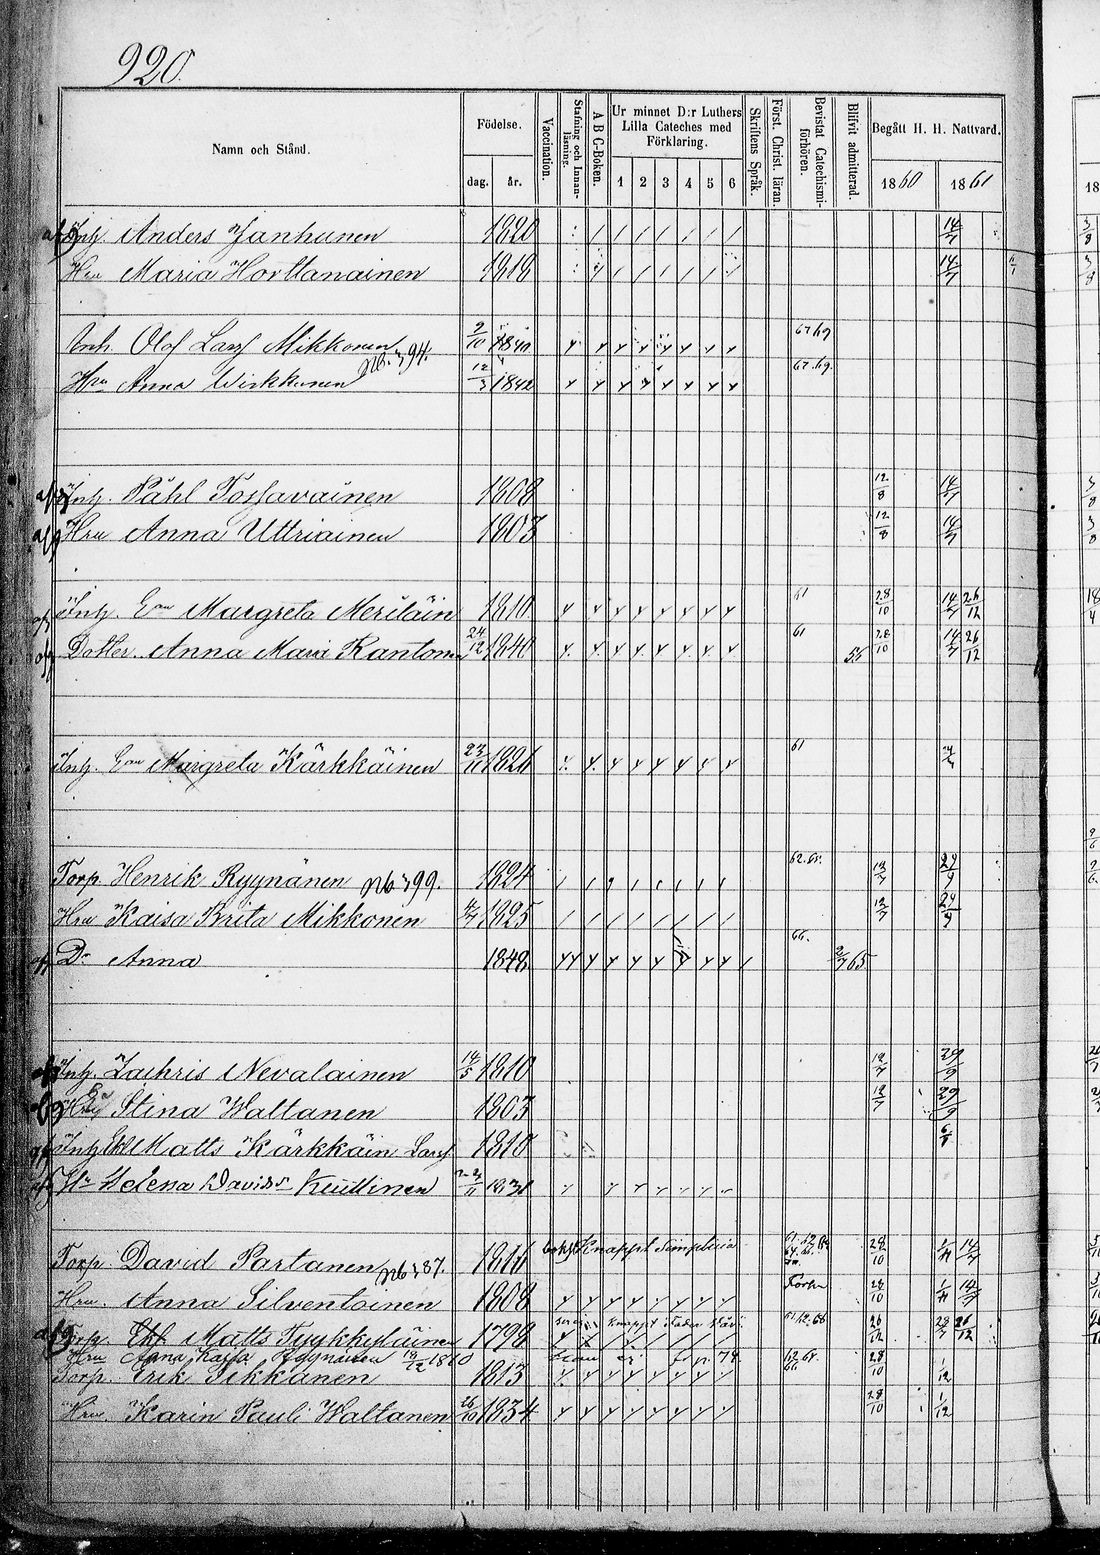 920.
Namn och Stånd. Födelse. Vaccination. Stafning och Innanläsning. A B C-Boken. Ur minnet D:r Luthers Lilla Cateches med Förklaring. Skriftens Språk. Först. Christ. läran. Bevistat Catechismiförhören. Blifvit admitterad. Begått H. H. Nattvard.
dag. år. 1 2 3 4 5 6 1860 1861
Inh. Anders Janhunen 1820 14/7
Hru Maria Horttanainen 1818 14/7
Inh. Olof Larss Mikkonen 9/10 1840 67.69
No. 394.
Hru Anna Wirkkunen 12/3 1842 67.69.
Inh. Påhl Tossavainen 1808 12/8 14/7
Hru Anna Uttriainen 1803 12/8 14/7
Inh. Ean Margreta Meriläin 1810 61 28/10 14/7 26/12
Dotter. Anna Maria Kantonen 24/12 1840 61 55 28/10 14/7 26/12
Inh. Ean Margreta Kärkkäinen 23/11 1826 61
Torp. Henrik Ryynänen No. 399. 1824 62.65. 12/7 29/9
Hru Kaisa Brita Mikkonen 1825 12/7 29/9
Dr Anna 1848 66. 2/7 65
Inh. Zachris Nevalainen 14/5 1810 12/7 29/9
Hru Stina Waltanen 1803 12/7 29/9
Inh Matts Kärkkäin Larss 1810 6/8
Hu Helena Davidsr Kuittinen 1831
Torp David Partanen No. 387. 1816 Knappt simplicia 28/10 1/11 14/7
Hru. Anna Silventoinen 1808 28/10 1/11 14/7
Torp. Matts Tyykkyläinen 1798 knappt 61.62.68 26/12 28/7 26/12
Hru Anna Kaisa Ryynänen 19/12 1810
Torp. Erik Ikkanen 1813 62.65. 28/10 1/12
Hru. Karin Pauli Waltanen 26/10 1834 28/10 1/12